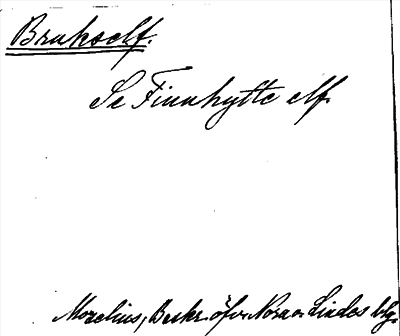 Brukself.
Se Finnhytte elf.
Morelius, Beskr. öfver Nora o. Lindes bg.